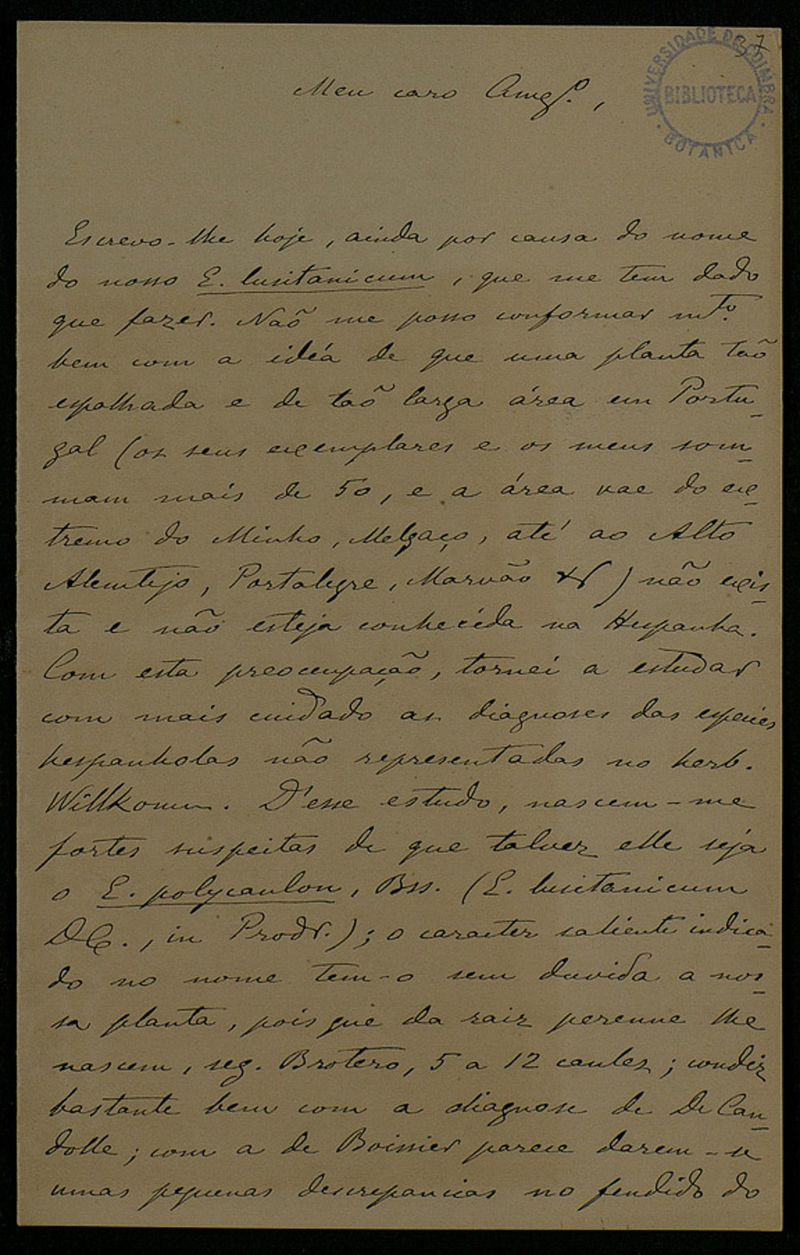 37
UNIVERSIDADE DE COIMBRA
BIBLIOTECA
BOTANICA
Meu caro Amgº.,
Escrevo-lhe hoje, ainda por causa do nome
do nosso E. lusitanicum, que me tem dado
que fazer. Naõ me posso conformar mtº.
bem com a idéa de que uma planta taõ
espalhada e de taõ larga área em Portu-
gal (os seus exemplares e os meus som-
mam mais de 50, e a área vae do ex-
tremo do Minho, Melgaço, até ao Alto
Alemtejo, Portalegre, Marvão &) não exis-
ta e não esteja conhecida na Hespanha.
Com esta preoccupação, tornei a estudar
com mais cuidado as diagnoses das especies
hespanholas não representadas no herb.
Willkomm. D'esse estudo, nascem-me
fortes suspeitas de que talvez elle seja
o E. polycaulon, Bss. (E. lusitanicum
DC., in Prodr.); o caracter saliente indica-
do no nome tem-o sem duvida a nos-
sa planta, pois que da raiz perenne lhe
nascem, seg. Brotero, 5 a 12 caules; condiz
bastante bem com a diagnose de De Can-
dolle; com a de Boissier parece darem-se
umas pequenas discrepancias no fendido do